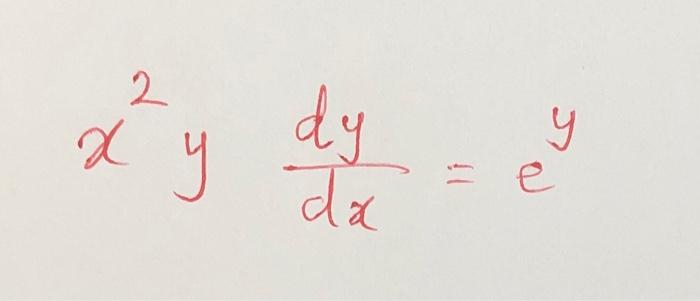 x² y dy/dx = e^y